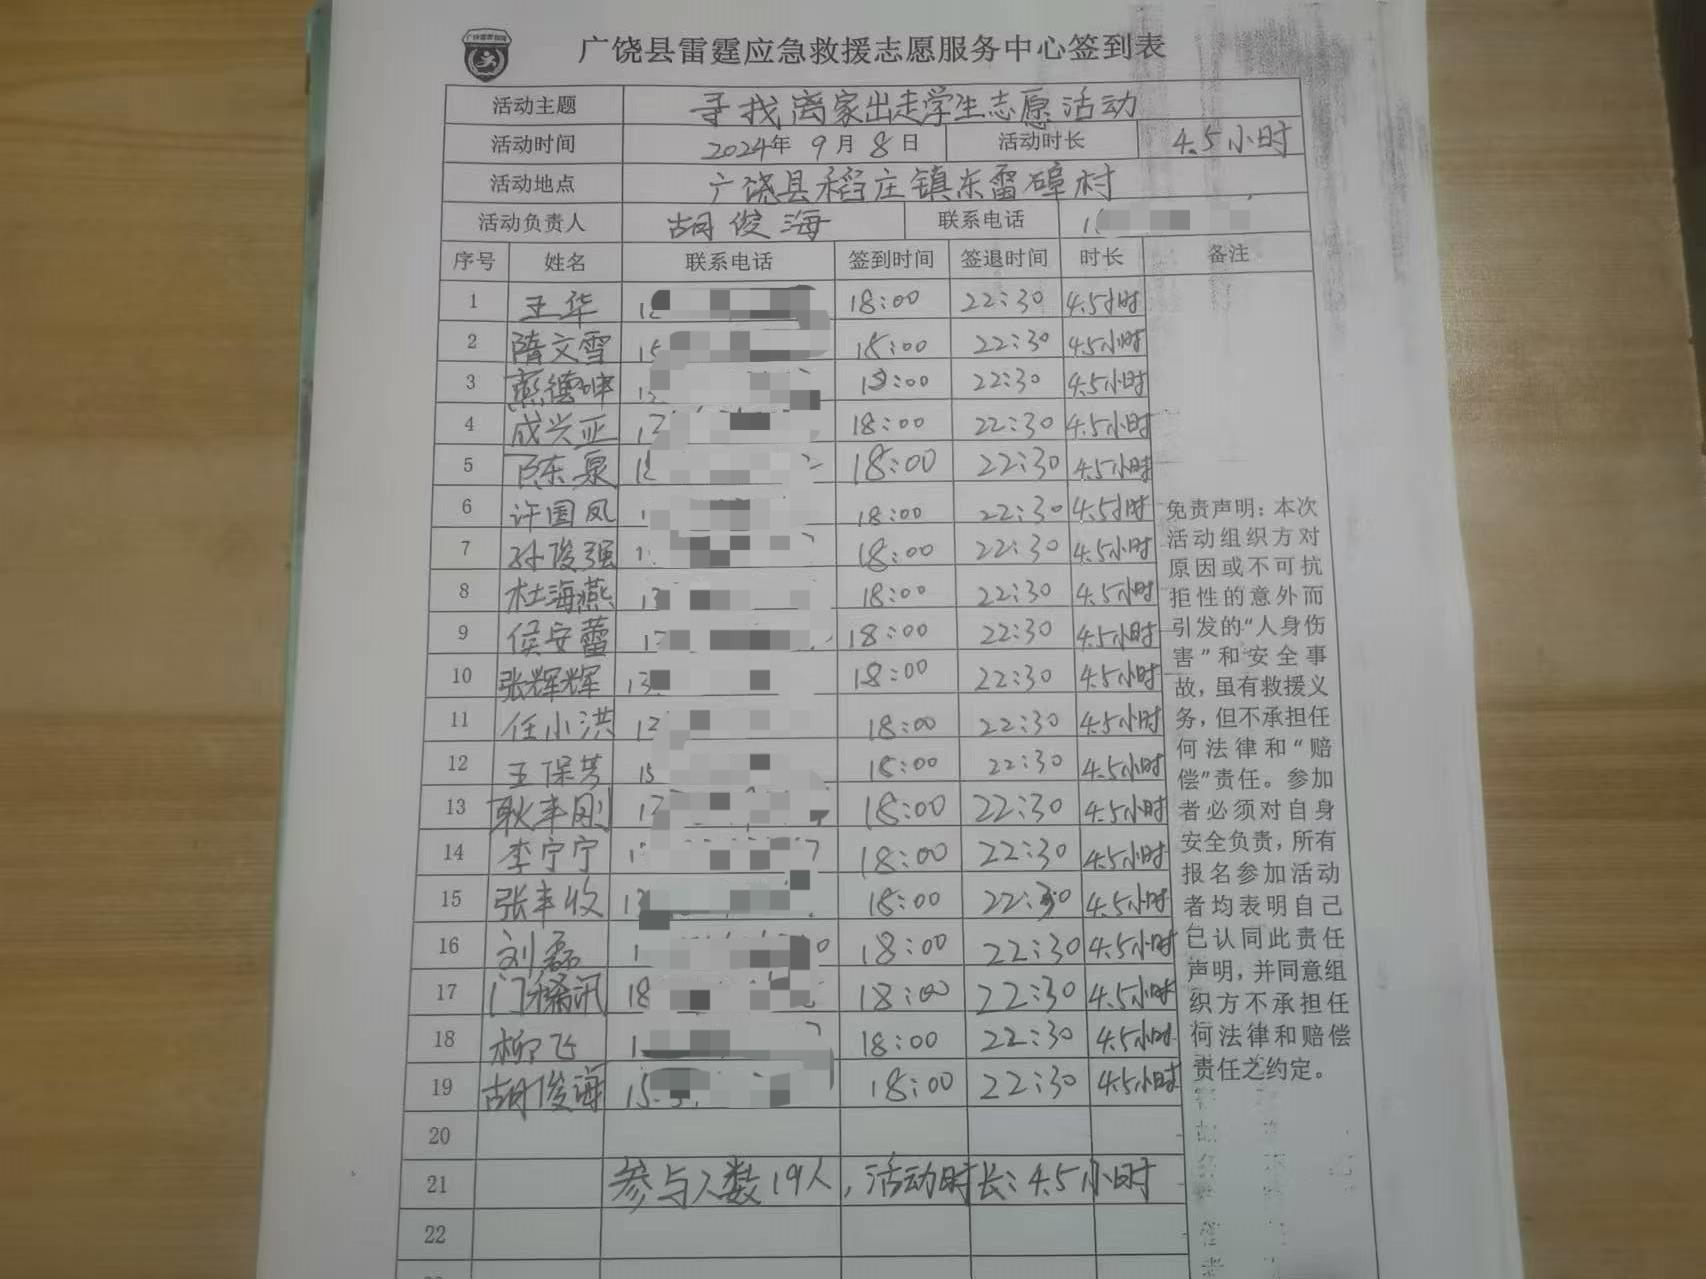 广饶县雷霆应急救援志愿服务中心签到表
活动主题 寻找离家出走学生志愿活动
活动时间 2024年 9月 8日 活动时长 4.5小时
活动地点 广饶县稻庄镇东雷埠村
活动负责人 胡俊海 联系电话 1
序号 姓名 联系电话 签到时间 签退时间 时长 备注
1 王华 18:00 22:30 4.5小时
2 隋文雪 15 18:00 22:30 4.5小时
3 燕德坤 18:00 22:30 4.5小时
4 成兴亚 18:00 22:30 4.5小时
5 陈东泉 18:00 22:30 4.5小时
6 许国凤 18:00 22:30 4.5小时
7 孙俊强 18:00 22:30 4.5小时
8 杜海燕 13 18:00 22:30 4.5小时
9 侯安蕾 18:00 22:30 4.5小时
10 张辉辉 13 18:00 22:30 4.5小时
11 任小洪 18:00 22:30 4.5小时
12 王保芳 15 18:00 22:30 4.5小时
13 耿丰刚 18:00 22:30 4.5小时
14 李宁宁 18:00 22:30 4.5小时
15 张丰收 13 18:00 22:30 4.5小时
16 刘磊 18:00 22:30 4.5小时
17 门 讯 18 18:00 22:30 4.5小时
18 柳飞 18:00 22:30 4.5小时
19 胡俊海 15 18:00 22:30 4.5小时
20
21 参与人数19人，活动时长：4.5小时
22
免责声明：本次
活动组织方对
原因或不可抗
拒性的意外而
引发的“人身伤
害”和安全事
故，虽有救援义
务，但不承担任
何法律和“赔
偿”责任。参加
者必须对自身
安全负责，所有
报名参加活动
者均表明自己
已认同此责任
声明，并同意组
织方不承担任
何法律和赔偿
责任之约定。